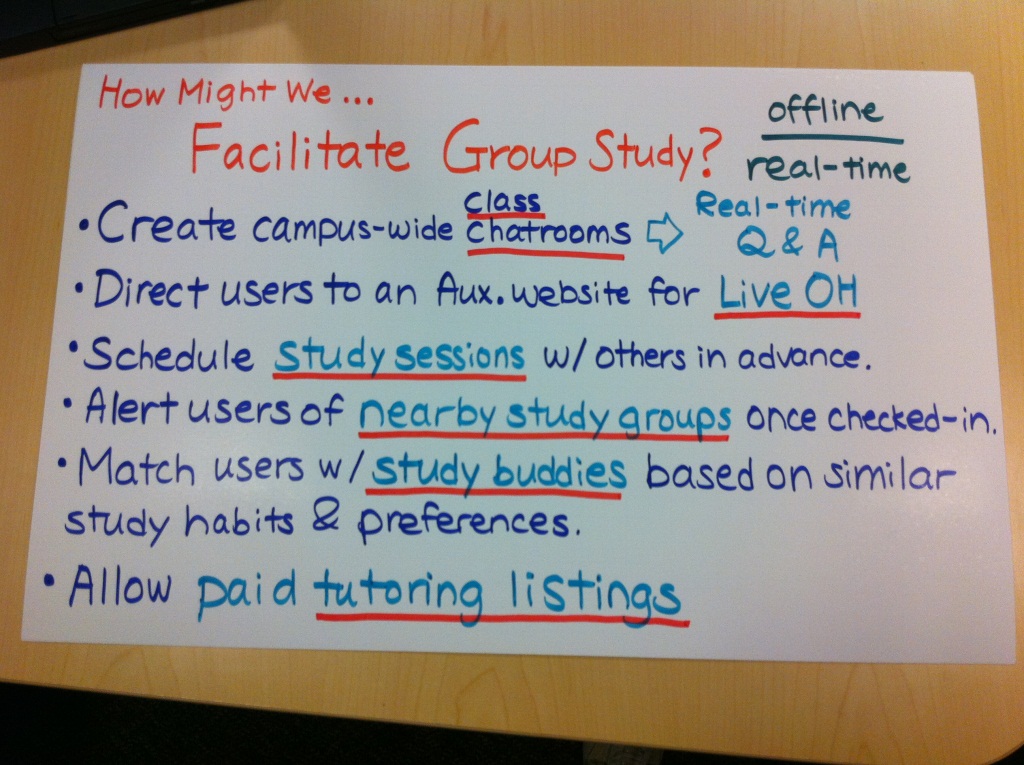 How Might We...
Facilitate Group Study?
offline
real-time
class
• Create campus-wide chatrooms ⇨ Real-time Q & A
• Direct users to an Aux. website for Live OH
• Schedule study sessions w/ others in advance.
• Alert users of nearby study groups once checked-in.
• Match users w/ study buddies based on similar
study habits & preferences.
• Allow paid tutoring listings